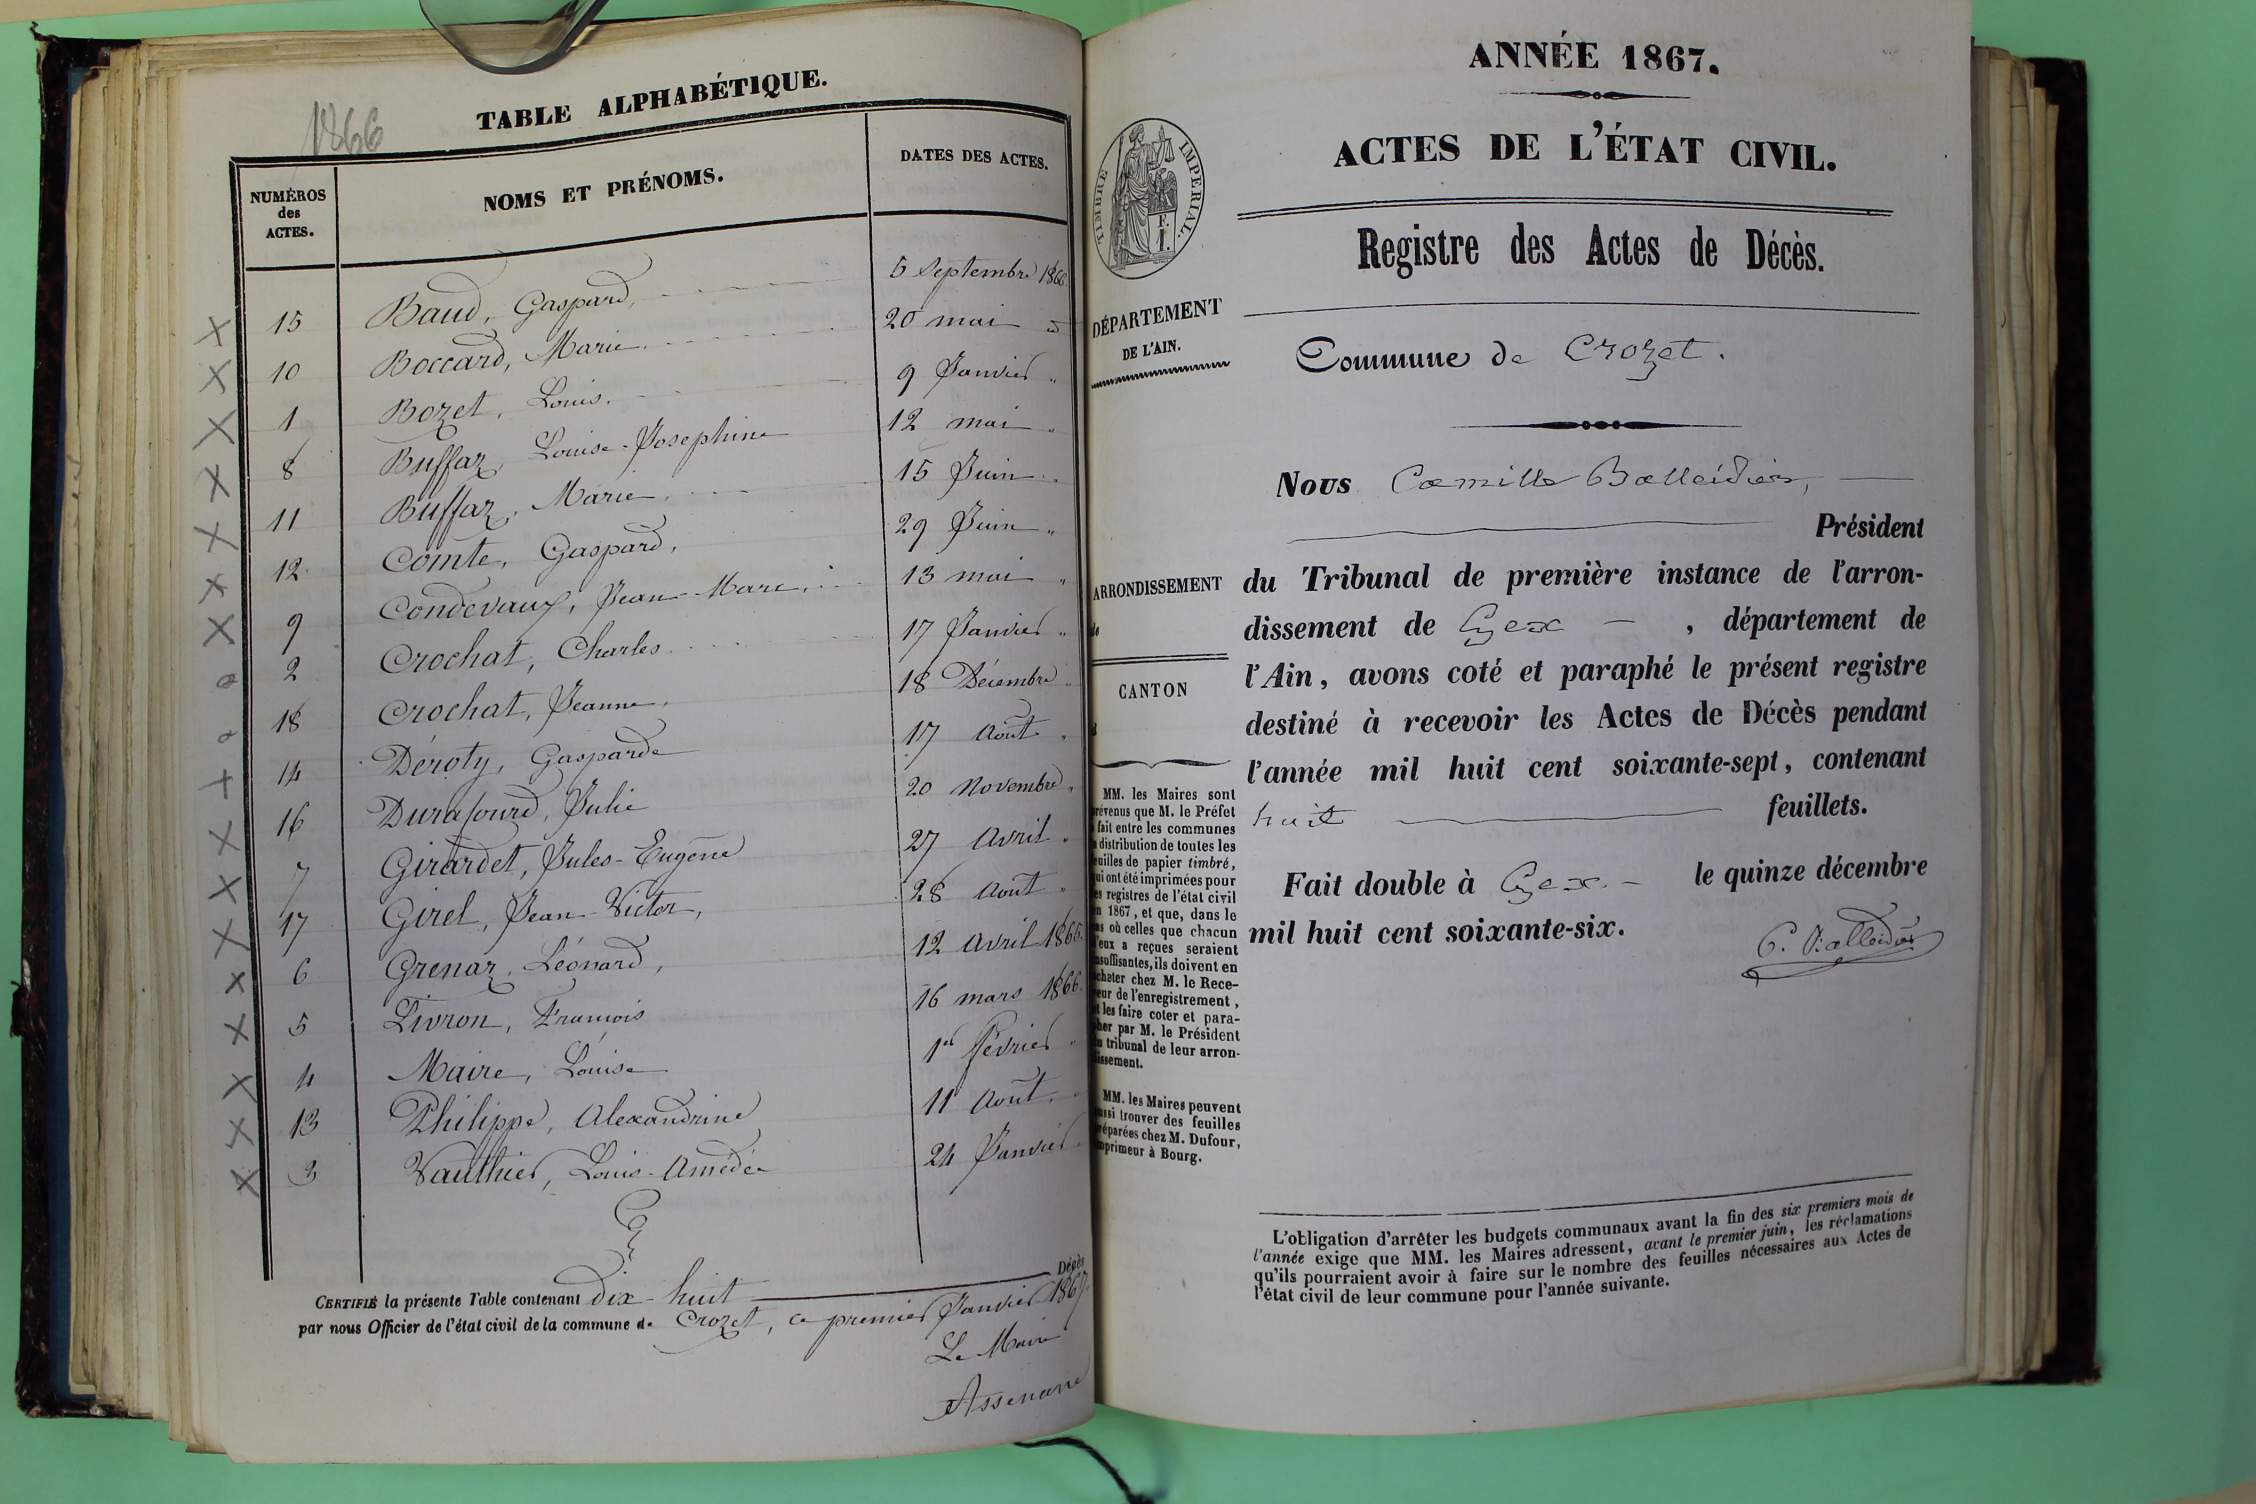 1866
TABLE ALPHABÉTIQUE.
NUMÉROS des ACTES.
NOMS ET PRÉNOMS.
DATES DES ACTES.
15 Baud, Gaspard, 5 Septembre 1866.
10 Boccard, Marie. 20 mai
1 Bozet, Louis. 9 Janvier "
8 Buffaz, Louise-Josephine 12 mai "
11 Buffaz, Marie, 15 Juin "
12 Comte, Gaspard, 29 Juin "
9 Condevaux, Jean-Marc, 13 mai "
2 Crochat, Charles 17 Janvier "
18 Crochat, Jeanne, 18 Décembre "
14 Déroty, Gasparde 17 Août "
16 Durafourd, Julie 20 Novembre "
7 Girardet, Jules-Eugène 27 Avril "
17 Girel, Jean-Victor, 28 Août "
6 Grenaz, Léonard, 12 Avril 1866.
5 Livron, François 16 mars 1866.
4 Maire, Louise 1er Février "
13 Philippe, Alexandrine 11 Août "
3 Vauthier, Louis-Amédée 24 Janvier "
CERTIFIÉ la présente Table contenant dix-huit Décès
par nous Officier de l'état civil de la commune de Crozet, ce premier Janvier 1867.
Le Maire
ANNÉE 1867.
ACTES DE L'ÉTAT CIVIL.
TIMBRE IMPERIAL.
Registre des Actes de Décès.
DÉPARTEMENT
DE L'AIN.
Commune de Crozet.
Nous Camille Balleidier,
Président
ARRONDISSEMENT
du Tribunal de première instance de l'arron-
dissement de Gex, département de
l'Ain, avons coté et paraphé le présent registre
CANTON
destiné à recevoir les Actes de Décès pendant
l'année mil huit cent soixante-sept, contenant
huit feuillets.
Fait double à Gex. le quinze décembre
mil huit cent soixante-six.
C. Balleidier
MM. les Maires sont
prévenus que M. le Préfet
a fait entre les communes
la distribution de toutes les
feuilles de papier timbré,
qui ont été imprimées pour
les registres de l'état civil
en 1867, et que, dans le
cas où celles que chacun
d'eux a reçues seraient
insuffisantes, ils doivent en
acheter chez M. le Rece-
veur de l'enregistrement,
et les faire coter et para-
pher par M. le Président
du tribunal de leur arron-
dissement.
MM. les Maires peuvent
aussi trouver des feuilles
préparées chez M. Dufour,
imprimeur à Bourg.
L'obligation d'arrêter les budgets communaux avant la fin des six premiers mois de
l'année exige que MM. les Maires adressent, avant le premier juin, les réclamations
qu'ils pourraient avoir à faire sur le nombre des feuilles nécessaires aux Actes de
l'état civil de leur commune pour l'année suivante.